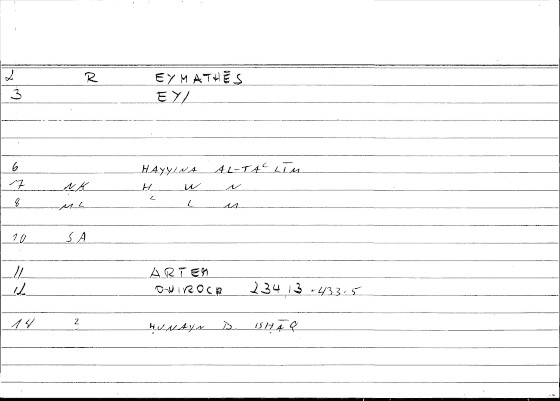 2 R EYMATHĒS
3 EY/
6 HAYYINA AL-TAʿLĪM
7 NK H W N
8 ML ʿ L M
10 SA
11 ARTEM
12 ONIROCR 234,13-433-5
14 2 ḤUNAYN B. ISḤĀQ